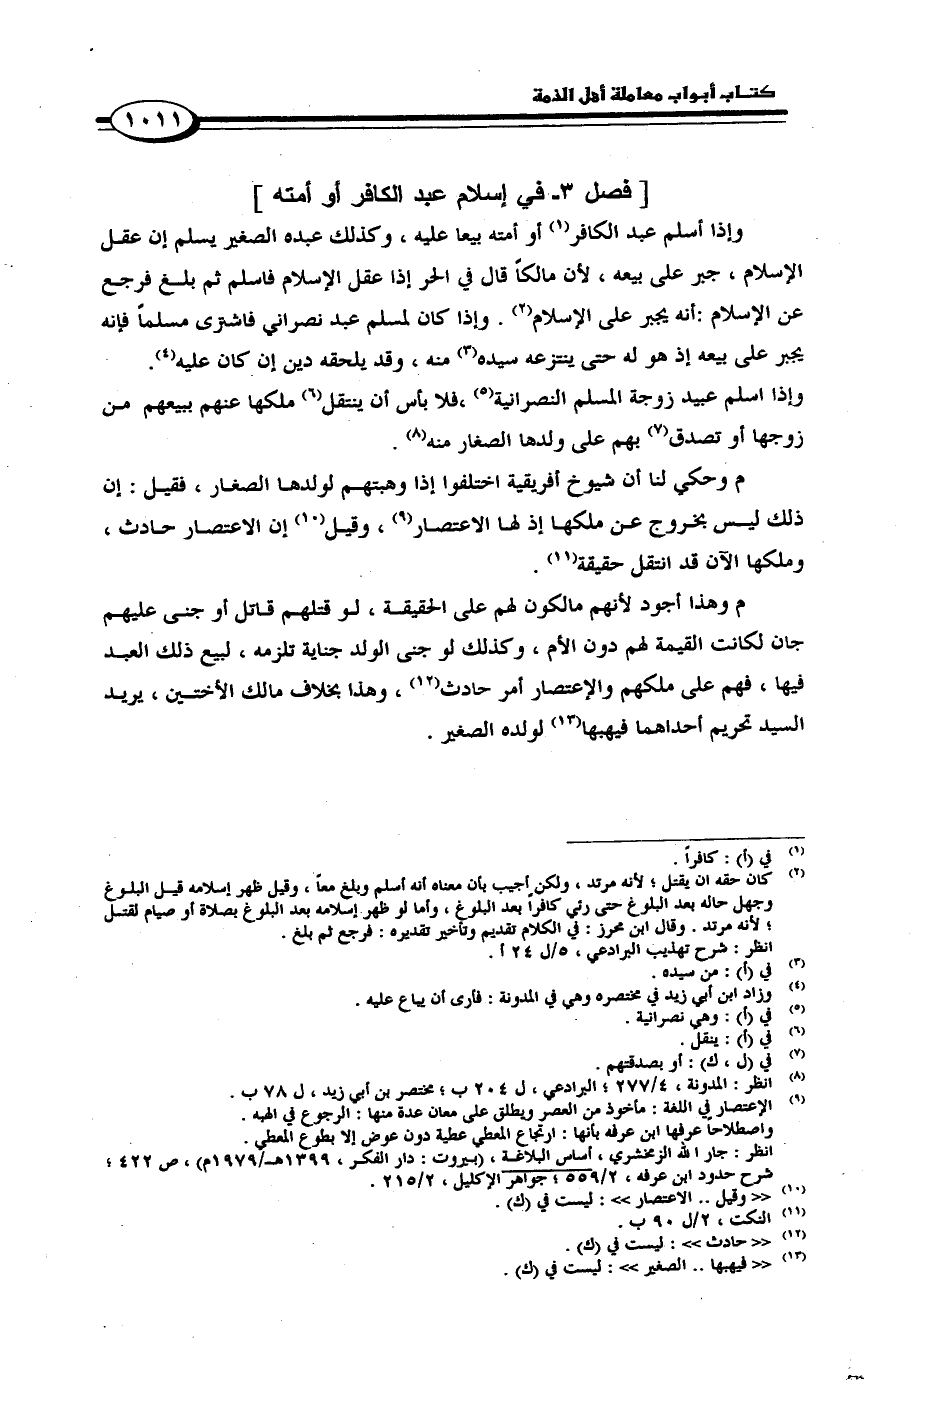 كتاب أبواب معاملة أهل الذمة
١٠١١
[ فصل ٣ـ في إسلام عبد الكافر أو أمته ]
وإذا أسلم عبد الكافر(١) أو أمته بيعا عليه ، وكذلك عبده الصغير يسلم إن عقل
الإسلام ، جبر على بيعه ، لأن مالكاً قال في الحر إذا عقل الإسلام فاسلم ثم بلغ فرجع
عن الإسلام :أنه يجبر على الإسلام(٢) . وإذا كان لمسلم عبد نصراني فاشترى مسلماً فإنه
يجبر على بيعه إذ هو له حتى ينتزعه سيده(٣) منه ، وقد يلحقه دين إن كان عليه(٤).
وإذا اسلم عبيد زوجة المسلم النصرانية(٥) ،فلا بأس أن ينتقل(٦) ملكها عنهم ببيعهم من
زوجها أو تصدق(٧) بهم على ولدها الصغار منه(٨) .
م وحكي لنا أن شيوخ أفريقية اختلفوا إذا وهبتهم لولدها الصغار ، فقيل : إن
ذلك ليس بخروج عن ملكها إذ لها الاعتصار(٩) ، وقيل(١٠) إن الاعتصار حادث ،
وملكها الآن قد انتقل حقيقة(١١) .
م وهذا أجود لأنهم مالكون لهم على الحقيقة ، لو قتلهم قاتل أو جنى عليهم
جان لكانت القيمة لهم دون الأم ، وكذلك لو جنى الولد جناية تلزمه ، لبيع ذلك العبد
فيها ، فهم على ملكهم والإعتصار أمر حادث(١٢) ، وهذا بخلاف مالك الأختين ، يريد
السيد تحريم أحداهما فيهبها(١٣) لولده الصغير .
(١) في (أ) : كافراً .
(٢) كان حقه ان يقتل ؛ لأنه مرتد ، ولكن أجيب بأن معناه أنه أسلم وبلغ معاً ، وقيل ظهر إسلامه قبل البلوغ
وجهل حاله بعد البلوغ حتى رئي كافراً بعد البلوغ ، وأما لو ظهر إسلامه بعد البلوغ بصلاة أو صيام لقتل
؛ لأنه مرتد . وقال ابن محرز : في الكلام تقديم وتأخير تقديره : فرجع ثم بلغ .
انظر : شرح تهذيب البرادعي ، ٥/ل ٢٤ أ .
(٣) في (أ) : من سيده .
(٤) وزاد ابن أبي زيد في مختصره وهي في المدونة : فأرى أن يباع عليه .
(٥) في (أ) : وهي نصرانية .
(٦) في (أ) : ينقل .
(٧) في (ل ، ك) : أو بصدقتهم .
(٨) انظر : المدونة ، ٢٧٧/٤ ؛ البرادعي ، ل ٢٠٤ ب ؛ مختصر بن أبي زيد ، ل ٧٨ ب .
(٩) الإعتصار في اللغة : مأخوذ من العصر ويطلق على معان عدة منها : الرجوع في الهبه .
واصطلاحاً عرفها ابن عرفه بأنها : ارتجاع المعطي عطية دون عوض إلا بطوع المعطي .
انظر : جار الله الزمخشري ، أساس البلاغة ، (بيروت : دار الفكر ، ١٣٩٩هـ/١٩٧٩م) ، ص ٤٢٢ ؛
شرح حدود ابن عرفه ، ٥٥٩/٢ ؛ جواهر الإكليل ، ٢١٥/٢ .
(١٠) << وقيل .. الاعتصار >> : ليست في (ك) .
(١١) النكت ، ٢/ل ٩٠ ب .
(١٢) << حادث >> : ليست في (ك) .
(١٣) << فيهبها .. الصغير >> : ليست في (ك) .